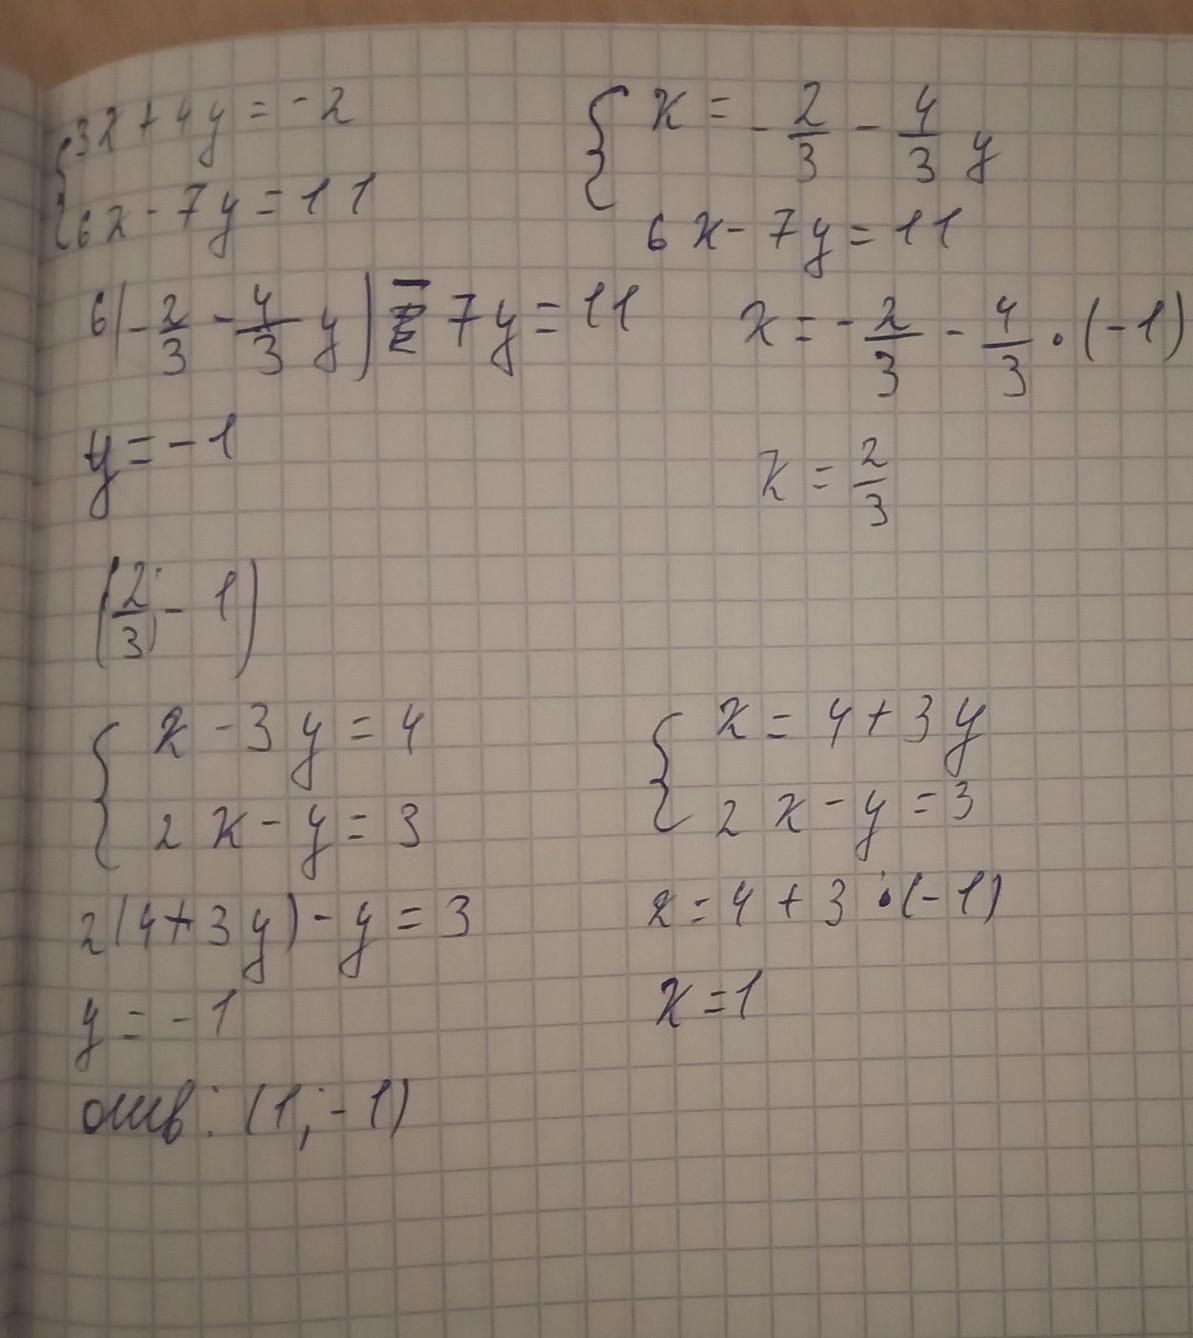 {3x + 4y = -2
{6x - 7y = 11
{x = -2/3 - 4/3 y
6x - 7y = 11
6(-2/3 - 4/3 y) - 7y = 11
x = -2/3 - 4/3 · (-1)
y = -1
x = 2/3
(2/3; -1)
{x - 3y = 4
2x - y = 3
{x = 4 + 3y
2x - y = 3
2(4 + 3y) - y = 3
x = 4 + 3 · (-1)
y = -1
x = 1
отв: (1; -1)